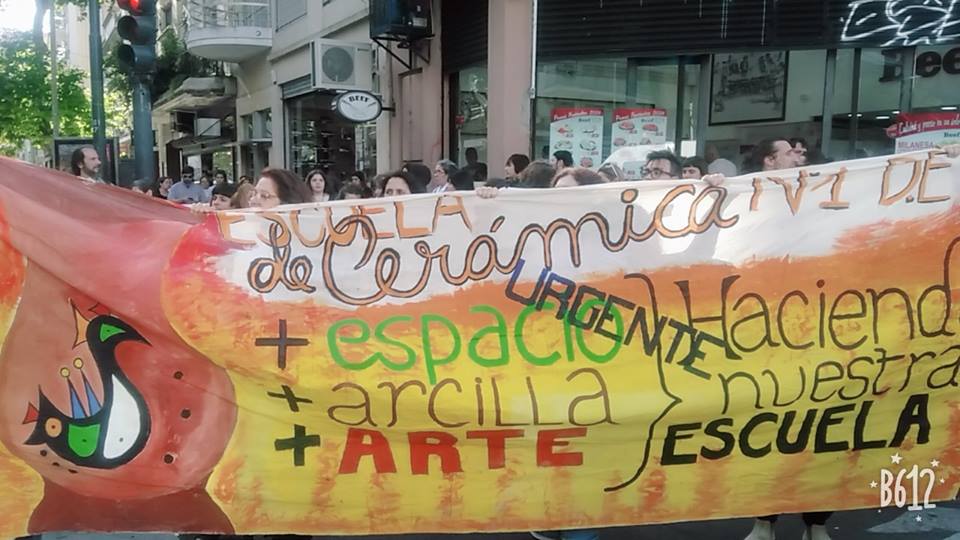 BEEF
Bee
MILANESA
ESCUELA
de Cerámica Nº1 DE
URGENTE
+ espacio
+ arcilla
+ ARTE
Haciend
nuestra
ESCUELA
B612